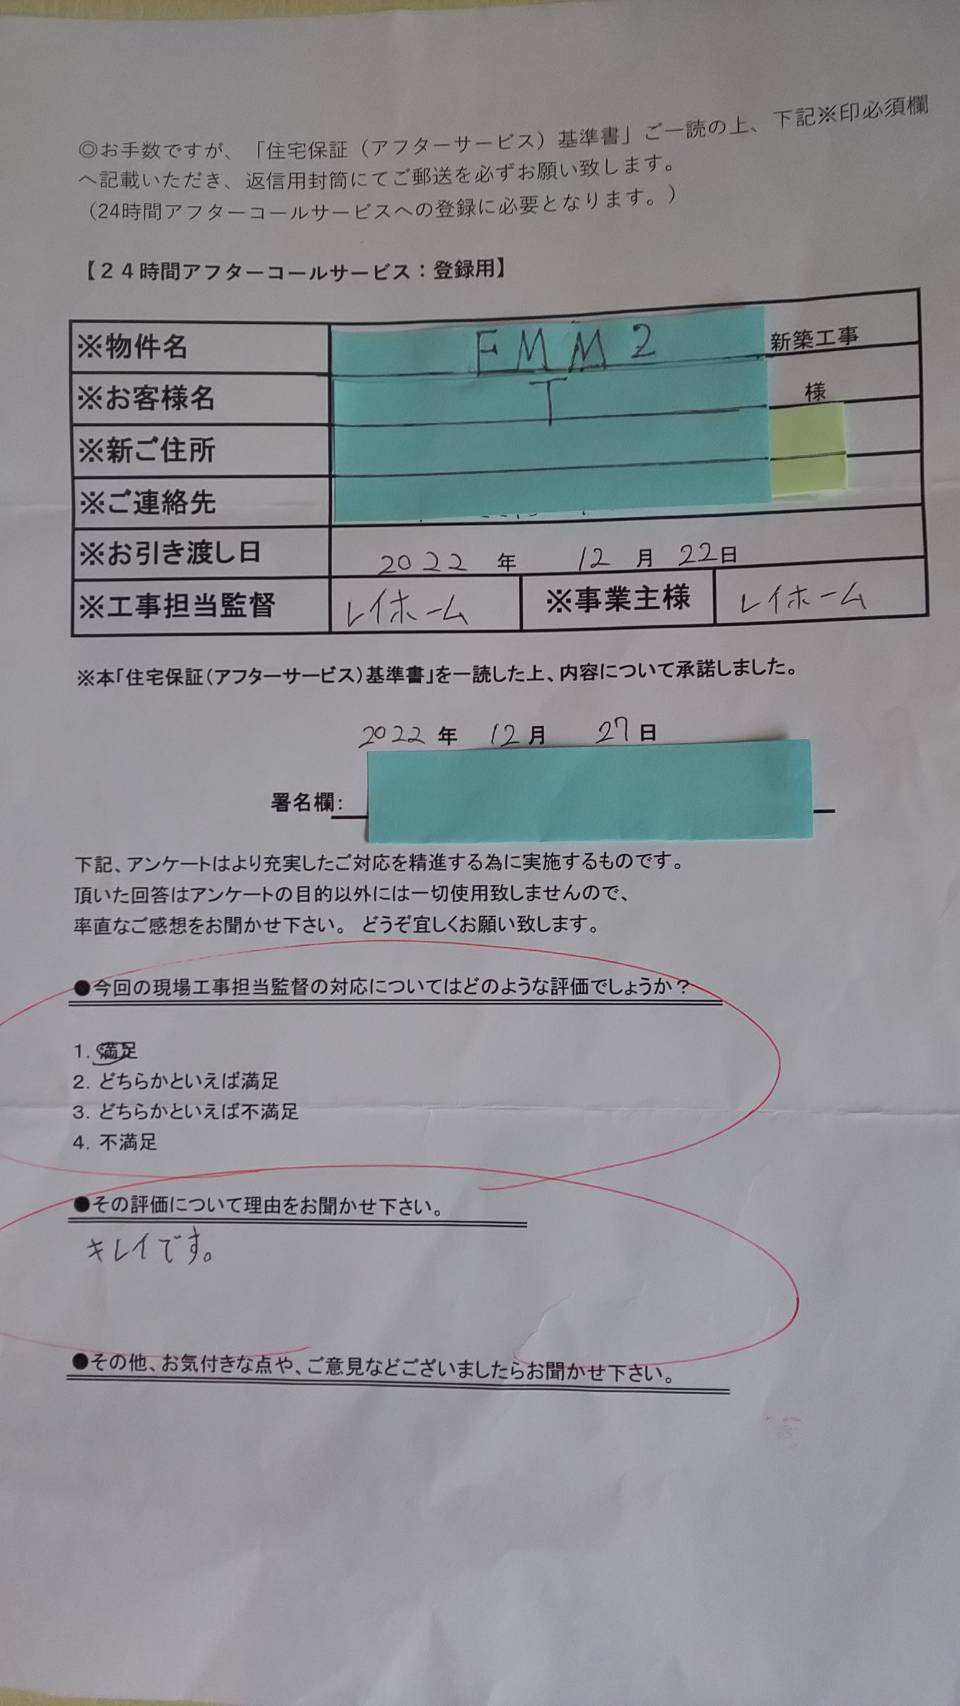 ◎お手数ですが、「住宅保証（アフターサービス）基準書」ご一読の上、下記※印必須欄
へ記載いただき、返信用封筒にてご郵送を必ずお願い致します。
（24時間アフターコールサービスへの登録に必要となります。）
【２４時間アフターコールサービス：登録用】
※物件名 FMM2 新築工事
※お客様名 T 様
※新ご住所
※ご連絡先
※お引き渡し日 2022 年 12 月 22日
※工事担当監督 レイホーム ※事業主様 レイホーム
※本「住宅保証（アフターサービス）基準書」を一読した上、内容について承諾しました。
2022 年 12 月 27 日
署名欄：
下記、アンケートはより充実したご対応を精進する為に実施するものです。
頂いた回答はアンケートの目的以外には一切使用致しませんので、
率直なご感想をお聞かせ下さい。 どうぞ宜しくお願い致します。
●今回の現場工事担当監督の対応についてはどのような評価でしょうか？
1. 満足
2. どちらかといえば満足
3. どちらかといえば不満足
4. 不満足
●その評価について理由をお聞かせ下さい。
キレイです。
●その他、お気付きな点や、ご意見などございましたらお聞かせ下さい。